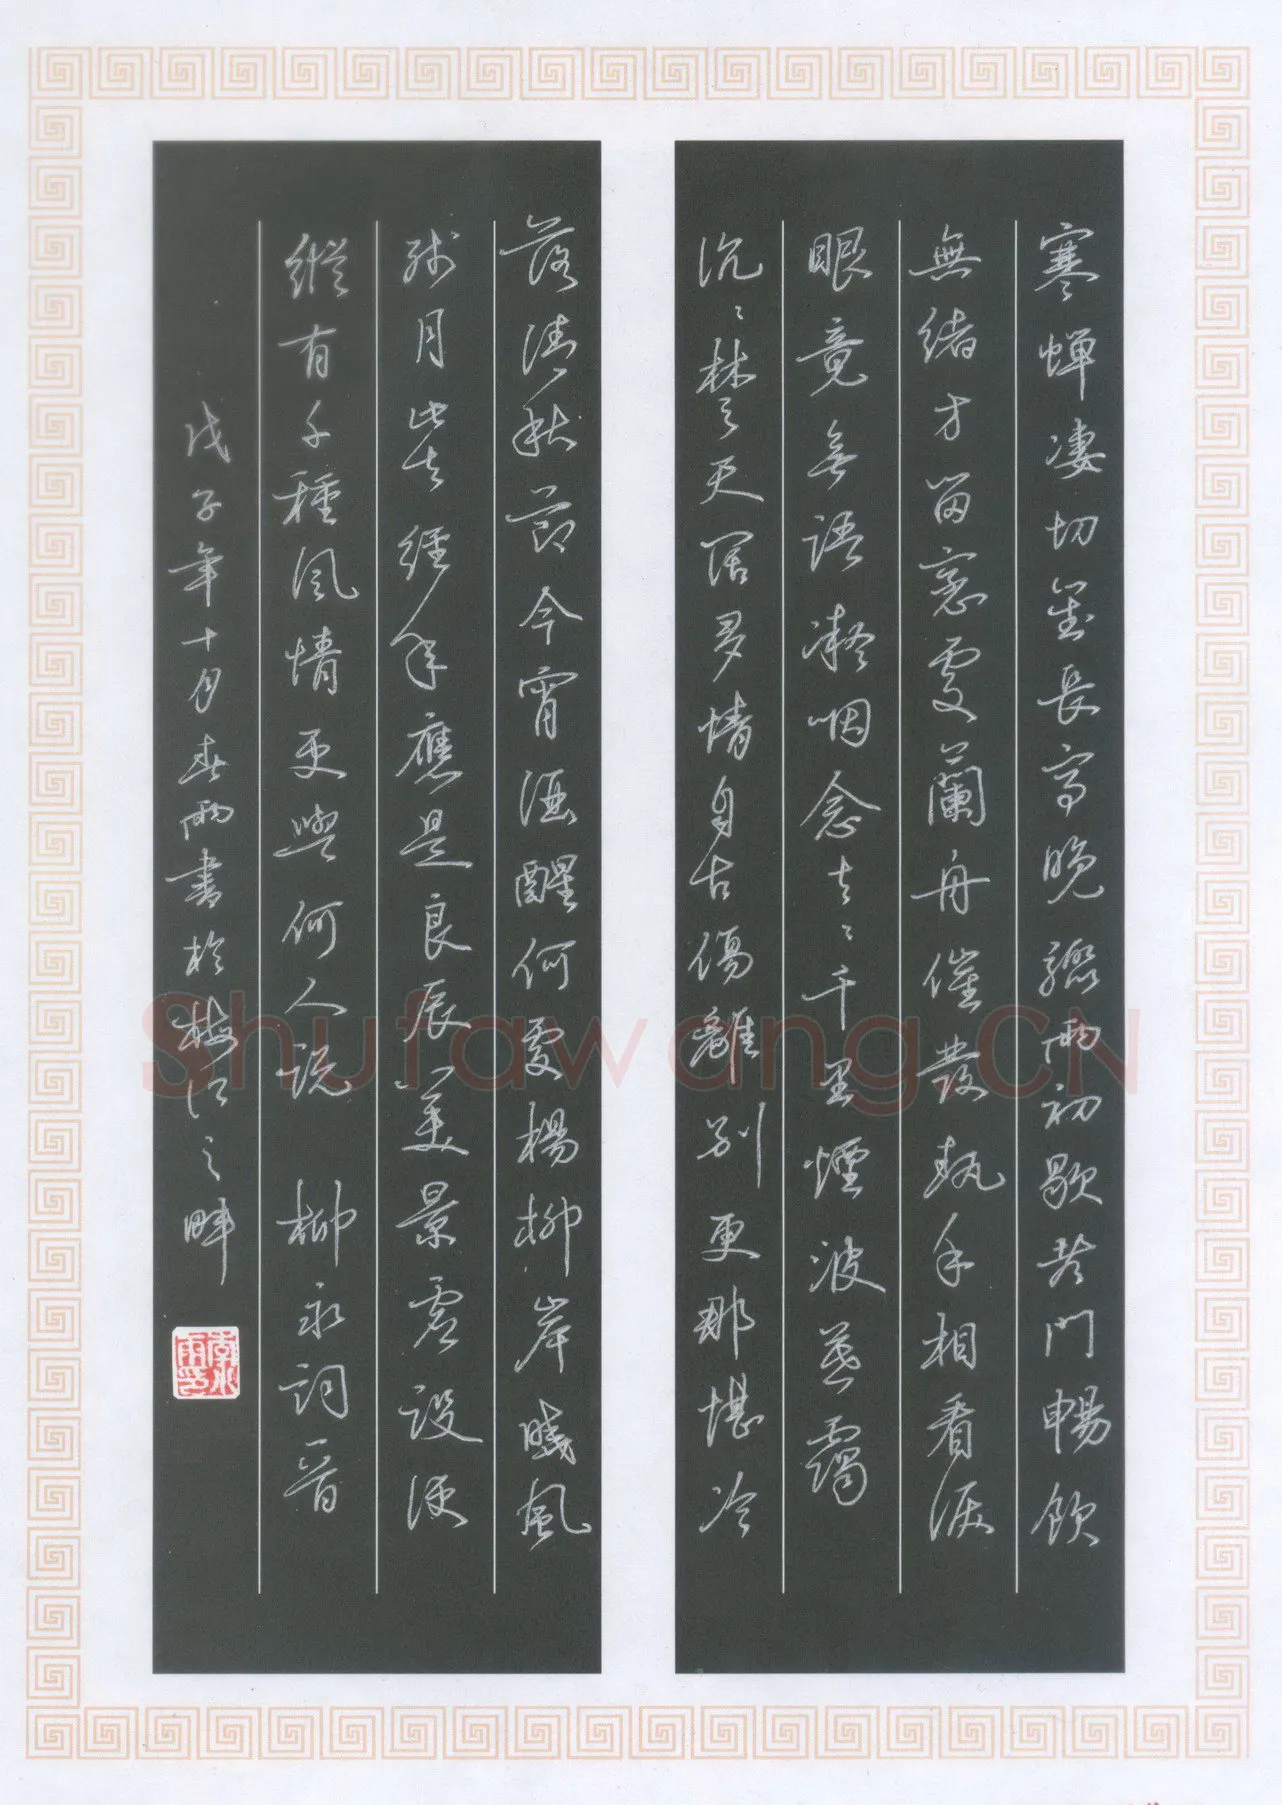 寒蟬凄切對長亭晚驟雨初歇都門暢飲
無緒方留戀處蘭舟催發執手相看淚
眼竟無語凝咽念去々千里煙波暮靄
沉々楚天闊多情自古傷離別更那堪冷
落清秋節今宵酒醒何處楊柳岸曉風
殘月此去經年應是良辰美景虛設便
縱有千種風情更與何人説 柳永詞一首
戊子年十月春雨書於梅江之畔
Shufawang.CN